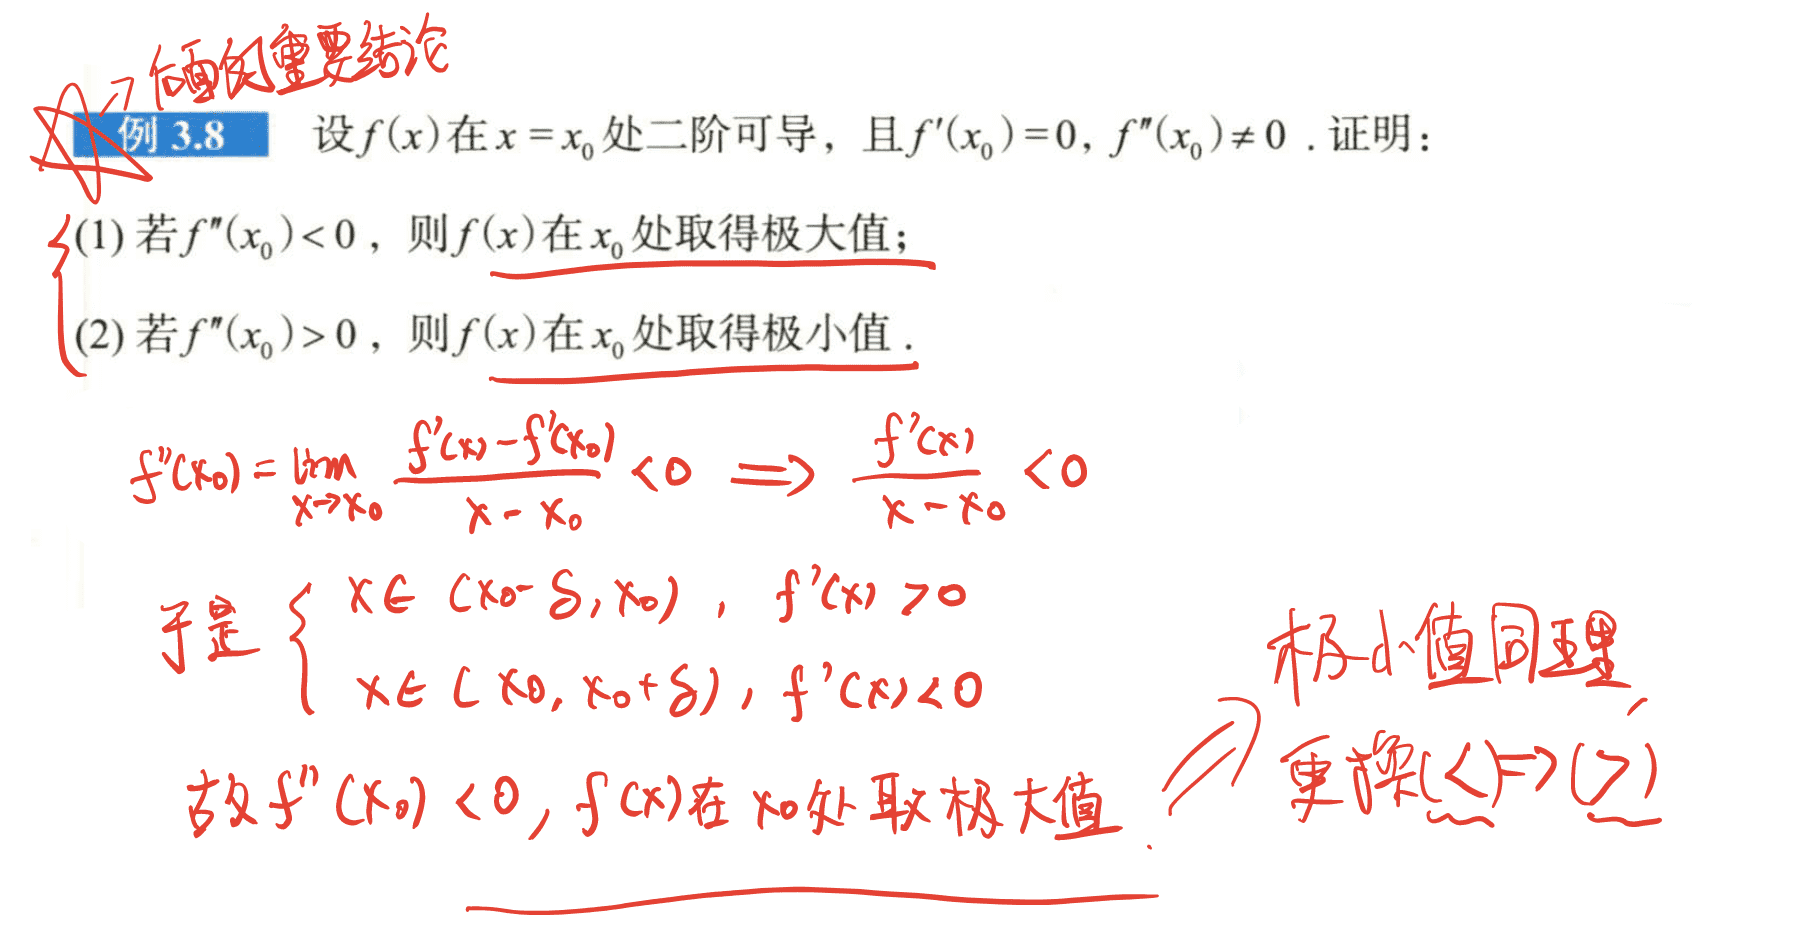 后面的重要结论
例 3.8 设f(x)在x=x₀处二阶可导，且f′(x₀)=0, f″(x₀)≠0．证明：
(1) 若f″(x₀)<0，则f(x)在x₀处取得极大值；
(2) 若f″(x₀)>0，则f(x)在x₀处取得极小值．
f″(x₀) = lim x→x₀ (f′(x)-f′(x₀))/(x-x₀) <0 ⟹ f′(x)/(x-x₀) <0
于是 { x∈(x₀-δ, x₀), f′(x)>0
x∈(x₀, x₀+δ), f′(x)<0
故f″(x₀)<0, f(x)在x₀处取极大值.
极小值同理
更换(<)⇒(>)